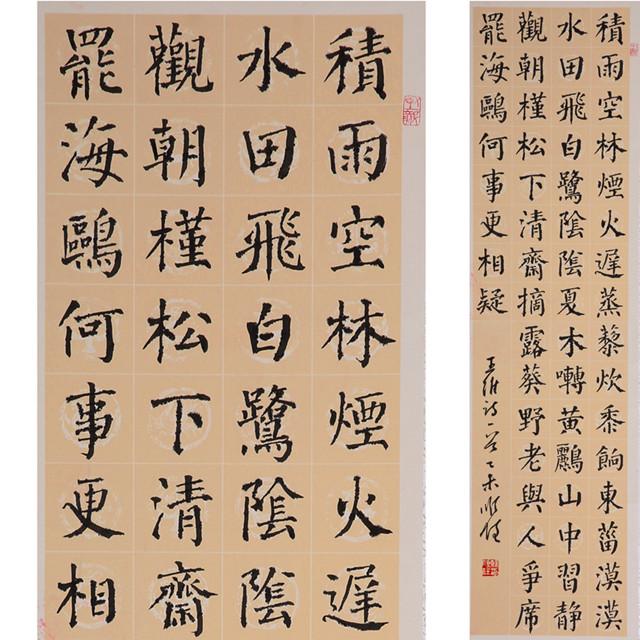 積雨空林煙火遲
水田飛白鷺陰陰
觀朝槿松下清齋
罷海鷗何事更相
積雨空林煙火遲蒸藜炊黍餉東菑漠漠
水田飛白鷺陰陰夏木囀黃鸝山中習静
觀朝槿松下清齋摘露葵野老與人爭席
罷海鷗何事更相疑
王維詩一首乙未